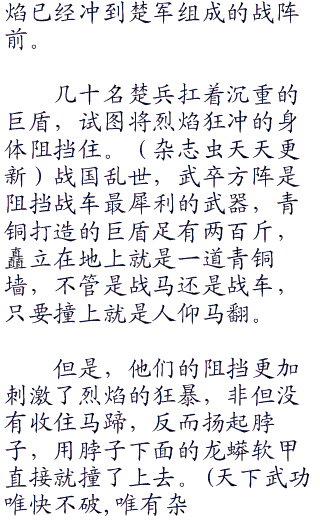 焰已经冲到楚军组成的战阵
前。
几十名楚兵扛着沉重的
巨盾，试图将烈焰狂冲的身
体阻挡住。（杂志虫天天更
新）战国乱世，武卒方阵是
阻挡战车最犀利的武器，青
铜打造的巨盾足有两百斤，
矗立在地上就是一道青铜
墙，不管是战马还是战车，
只要撞上就是人仰马翻。
但是，他们的阻挡更加
刺激了烈焰的狂暴，非但没
有收住马蹄，反而扬起脖
子，用脖子下面的龙蟒软甲
直接就撞了上去。(天下武功
唯快不破,唯有杂